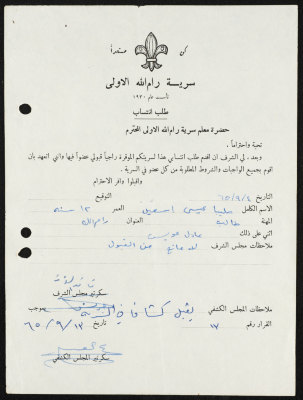 كن مستعداً
سرية رام الله الاولى
تأسست عام ١٩٢٠
طلب انتساب
حضرة معلم سرية رام الله الاولى المحترم
تحية واحتراماً ،
وبعد ، لي الشرف ان اقدم طلب انتسابي هذا لسريتكم الموقرة راجياً قبولي عضواً فيها وانني اتعهد بان
اقوم بجميع الواجبات والشروط المطلوبة من كل عضو في السرية .
واقبلوا وافر الاحترام
التاريخ ٦٥/٩/٤ التوقيع
الاسم الكامل عيسى العمر ١٢ سنة
المهنة العنوان رام الله
اثنى على ذلك عادل
ملاحظات مجلس الشرف لا مانع من القبول
سكرتير مجلس الشرف
ملاحظات المجلس الكشفي يقبل كشافا في السرية بموجب
القرار رقم ١٧ تاريخ ٦٥/٩/١٢
سكرتير المجلس الكشفي